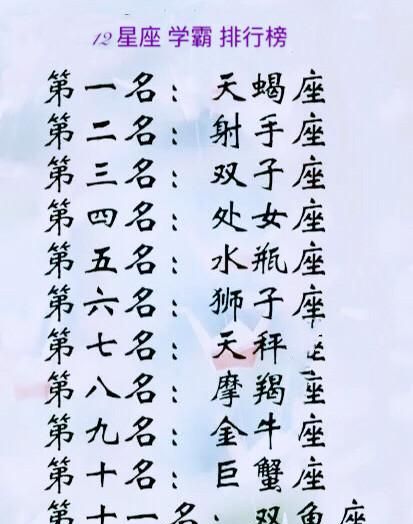 12星座 学霸 排行榜
第一名：天蝎座
第二名：射手座
第三名：双子座
第四名：处女座
第五名：水瓶座
第六名：狮子座
第七名：天秤座
第八名：摩羯座
第九名：金牛座
第十名：巨蟹座
第十一名：双鱼座